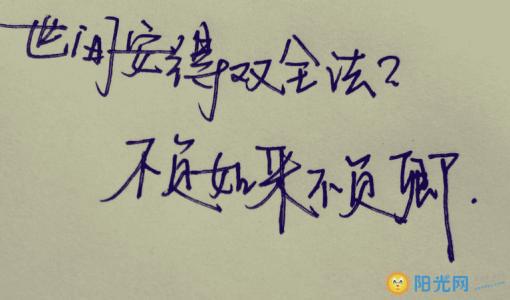 世间安得双全法?
不负如来不负卿.
阳光网